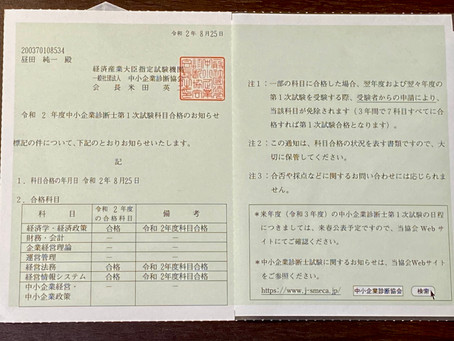 令和 2年 8月25日
200370108534
昼田 純一 殿
経済産業大臣指定試験機関
一般社団法人 中小企業診断協会
会 長 米 田 英
令和 2年度中小企業診断士第1次試験科目合格のお知らせ
標記の件について、下記のとおりお知らせいたします。
記
1．科目合格の年月日 令和 2年 8月25日
2．合格科目
科 目 令和 2年度の合格科目 備 考
経済学・経済政策 合格 令和 2年度科目合格
財務・会計 － －
企業経営理論 － －
運営管理 － －
経営法務 合格 令和 2年度科目合格
経営情報システム 合格 令和 2年度科目合格
中小企業経営・ － －
中小企業政策
注1：一部の科目に合格した場合、翌年度および翌々年度の
第1次試験を受験する際、受験者からの申請により、
当該科目が免除されます（3年間で7科目すべてに合
格すれば第1次試験合格となります）。
注2：この通知は、科目合格の状況を表す書類ですので、大
切に保管してください。
注3：合否や採点などに関するお問い合わせには応じられま
せん。
＊来年度（令和3年度）の中小企業診断士第1次試験の日程
につきましては、来春公表予定ですので、当協会 Web サ
イトにてご確認ください。
＊中小企業診断士試験に関するお知らせは、当協会Webサイト
をご参照ください。
https://www.j-smeca.jp/ 中小企業診断協会 検索